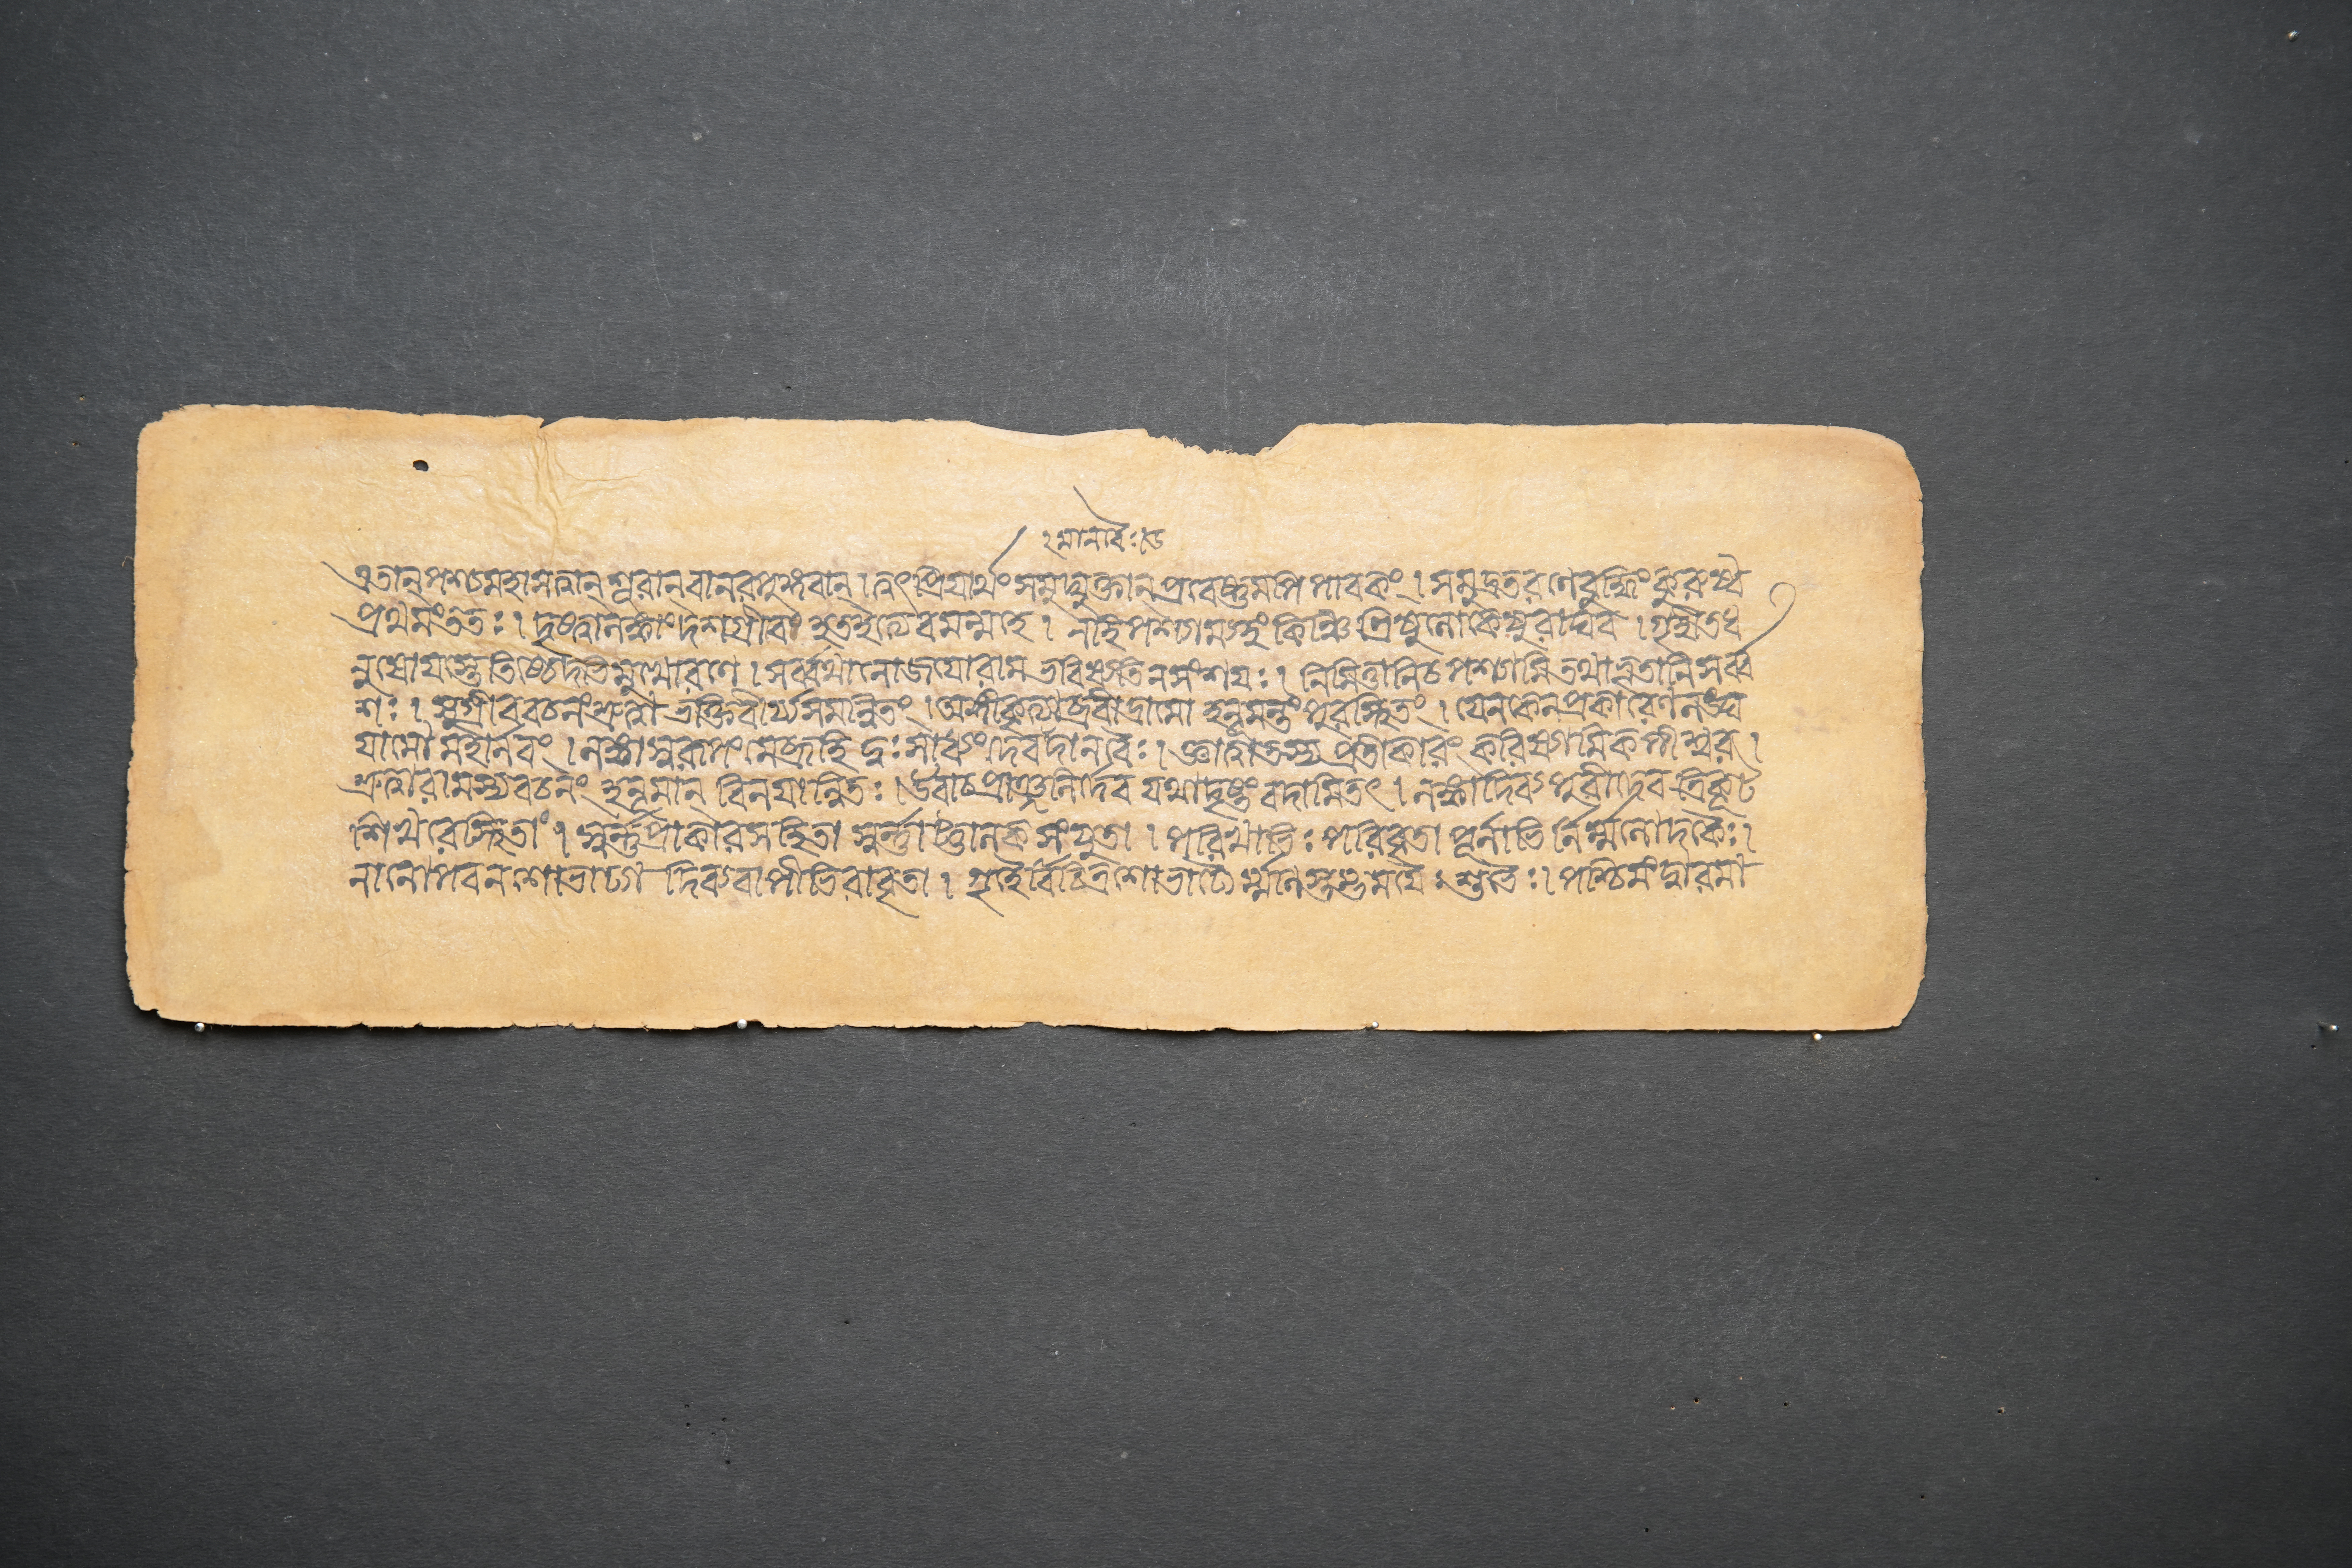 মানবৈঃ
এতান্পশ্যমহাসত্বান্শূরান্বানরপুঙ্গবান্।ত্বৎপ্রিয়ার্থংসমুদ্যুক্তান্প্রবেষ্টুমপিপাবকং।সমুদ্রতরণেবুদ্ধিংকুরুষ্ব
প্রথমংততঃ।দৃষ্ট্বালঙ্কাংদশগ্রীবংহতইত্যেবমন্মহে।নহিপশ্যাম্যহংকিঞ্চিত্ত্রিষুলোকেষুরাঘব।গৃহীতধ
নুষোযস্তেতিষ্ঠেদভিমুখোরণে।সর্ব্বথানোজয়োরামভবিষ্যতিনসংশয়ঃ।নিমিত্তানিচপশ্যামিতথাভূতানিসর্ব্ব
শঃ।সুগ্রীববচনংশ্রুত্বাভক্তিবীর্য্যসমন্বিতং।অঙ্গীকৃত্যাব্রবীদ্রামোহনূমন্তংপুরঃস্থিতং।যেনকেনপ্রকারেণলঙ্ঘ
যামোমহার্নবং।লঙ্কাস্বরূপংমেব্রূহিদুঃসাধ্যংদেবদানবৈঃ।জ্ঞাত্বাতস্যপ্রতীকারংকরিষ্যামিকপীশ্বর।
শ্রুত্বারামস্যবচনংহনূমান্বিনয়ান্বিতঃ।উবাচপ্রাঞ্জলির্দেবযথাদৃষ্টংবদামিতৎ।লঙ্কাদিব্যাপুরীদেবত্রিকূট
শিখরেস্থিতা।স্বর্ন্নপ্রাকারসহিতাস্বর্ন্নাট্টালকসংযুতা।পরিখাভিঃপরিবৃতাপূর্নাভির্নির্ম্মলোদকৈঃ।
নানোপবনশোভাঢ্যাদিব্যবাপীভিরাবৃতা।গৃহৈর্বিচিত্রশোভাঢ্যৈর্ম্মনিস্তম্ভময়ৈঃশুভৈঃ।পশ্চিমংদ্বারমা